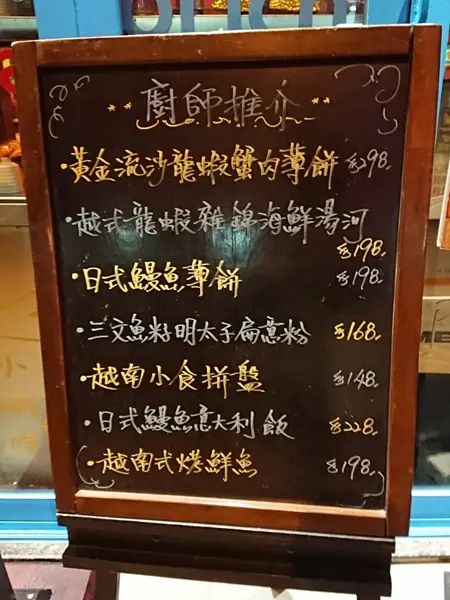 ** 廚師推介 **
•黃金流沙龍蝦蟹肉薄餅 $298.
•越式龍蝦雜錦海鮮湯河
$198.
•日式鰻魚薄餅 $198.
•三文魚籽明太子扁意粉 $168.
•越南小食拼盤 $148.
•日式鰻魚意大利飯 $228.
•越南式烤鮮魚 $198.